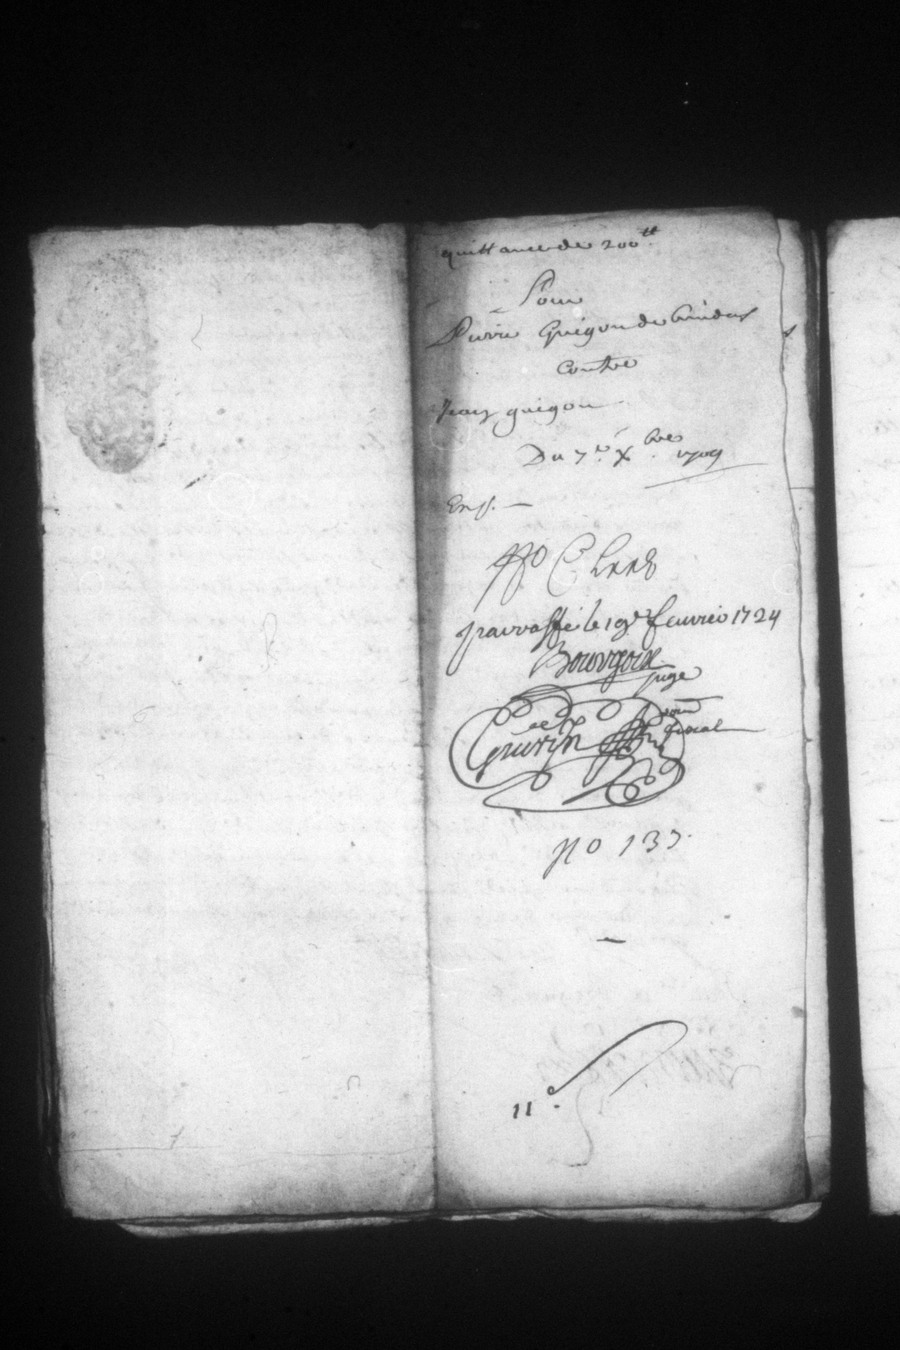 quittance de 200tt
Pour
Pierre Guigou de
contre
Jean guigou
Du 7e Xbre 1709
No C
paraffé le 19e feuvrie 1724
Bourgoin
juge
Guerin
fiscal
No 137
11